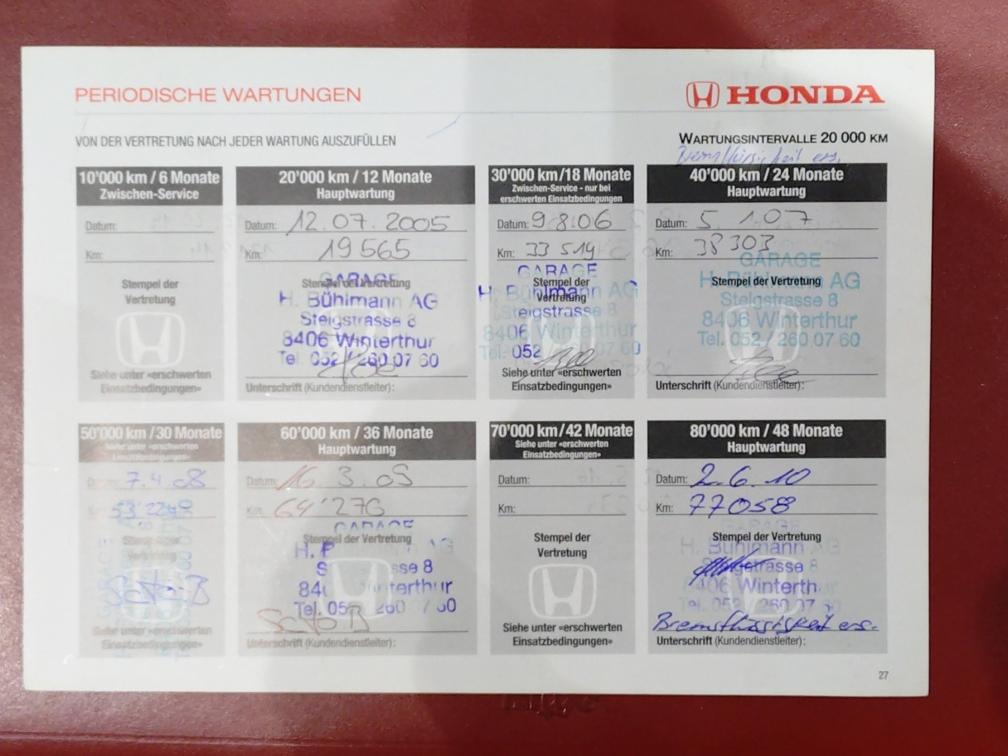 PERIODISCHE WARTUNGEN
HONDA
VON DER VERTRETUNG NACH JEDER WARTUNG AUSZUFÜLLEN
WARTUNGSINTERVALLE 20 000 KM
Bremsflüssigkeit ers.
10'000 km / 6 Monate
Zwischen-Service
Datum:
Km:
Stempel der
Vertretung
Siehe unter «erschwerten
Einsatzbedingungen»
20'000 km / 12 Monate
Hauptwartung
Datum: 12.07.2005
Km: 19565
Stempel der Vertretung
GARAGE
H. Bühlmann AG
Steigstrasse 8
8406 Winterthur
Tel. 052 / 260 07 60
Unterschrift (Kundendienstleiter):
30'000 km/18 Monate
Zwischen-Service - nur bei
erschwerten Einsatzbedingungen
Datum: 9.8.06
Km: 33 519
GARAGE
Stempel der
Vertretung
H. Bühlmann AG
Steigstrasse 8
8406 Winterthur
Tel. 052 60
Siehe unter «erschwerten
Einsatzbedingungen»
40'000 km / 24 Monate
Hauptwartung
Datum: 5. 1.07
Km: 38303
GARAGE
Stempel der Vertretung
H. Bühlmann AG
Steigstrasse 8
8406 Winterthur
Tel. 052 / 260 07 60
Unterschrift (Kundendienstleiter):
50'000 km / 30 Monate
Siehe unter «erschwerten
Einsatzbedingungen»
Datum: 7.4.08
Stempel der
Vertretung
Siehe unter «erschwerten
Einsatzbedingungen»
60'000 km / 36 Monate
Hauptwartung
Datum: 16. 3.09
Km: 64'276
GARAGE
Stempel der Vertretung
H. B AG
sse 8
840 Winterthur
Tel. 052 260 / 60
Unterschrift (Kundendienstleiter):
70'000 km/42 Monate
Siehe unter «erschwerten
Einsatzbedingungen»
Datum:
Km:
Stempel der
Vertretung
Siehe unter «erschwerten
Einsatzbedingungen»
80'000 km / 48 Monate
Hauptwartung
Datum: 2.6.10
Km: 77058
GARAGE
Stempel der Vertretung
H. Bühlmann AG
Steigstrasse 8
8406 Winterthur
Tel. 052 260 07
Bremsflüssigkeit ers.
Unterschrift (Kundendienstleiter):
27